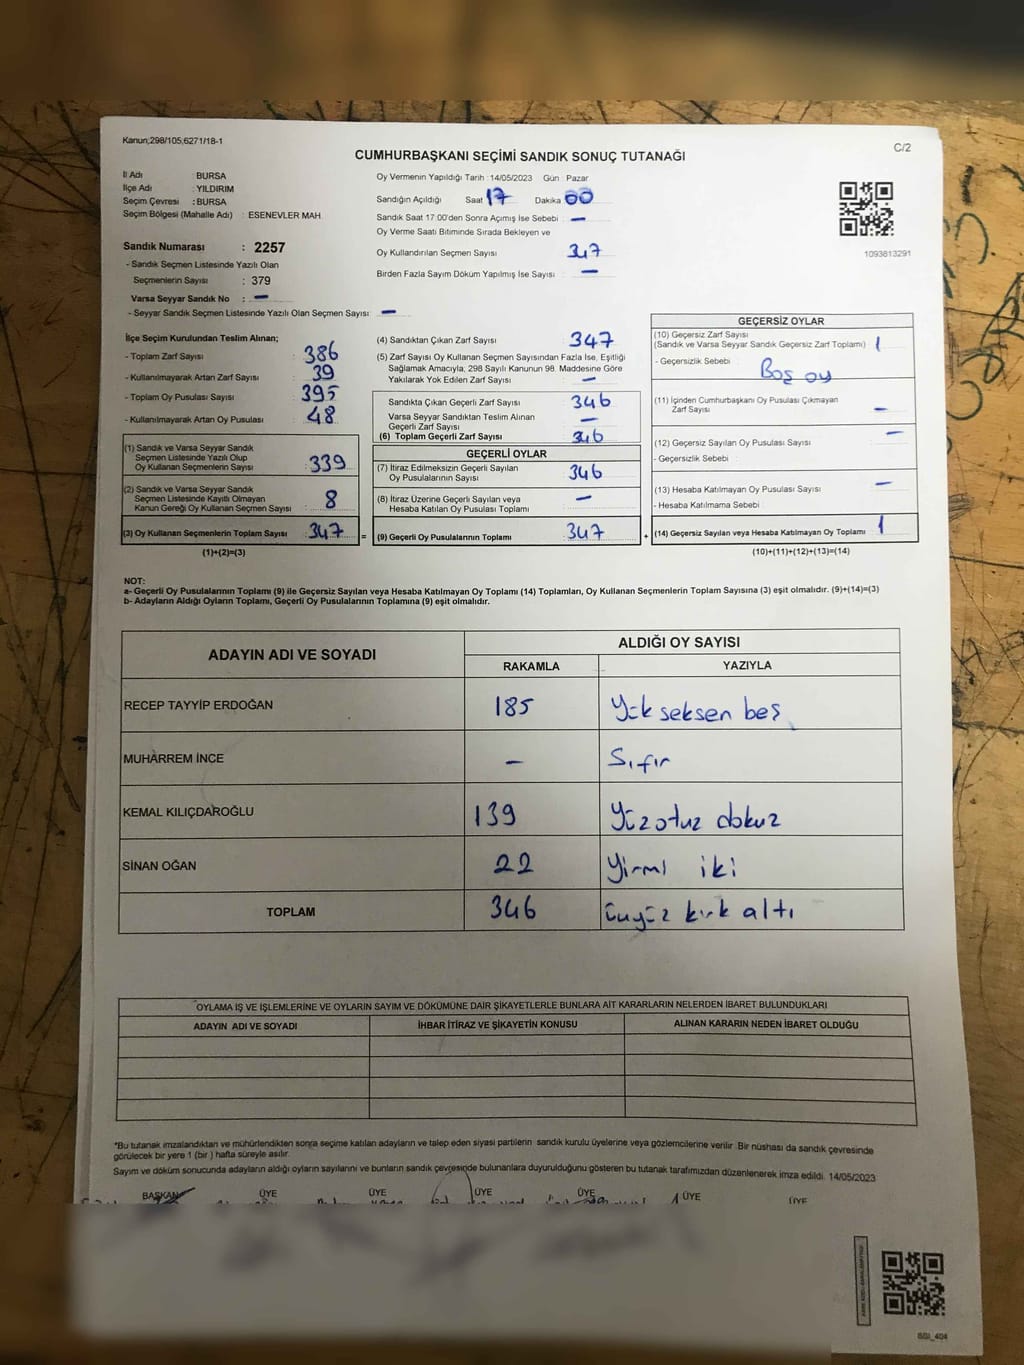 Kanun;298/105;6271/18-1
C/2
CUMHURBAŞKANI SEÇİMİ SANDIK SONUÇ TUTANAĞI
İl Adı : BURSA
İlçe Adı : YILDIRIM
Seçim Çevresi : BURSA
Seçim Bölgesi (Mahalle Adı) : ESENEVLER MAH.
Sandık Numarası : 2257
- Sandık Seçmen Listesinde Yazılı Olan
Seçmenlerin Sayısı : 379
Varsa Seyyar Sandık No : –
- Seyyar Sandık Seçmen Listesinde Yazılı Olan Seçmen Sayısı: –
Oy Vermenin Yapıldığı Tarih : 14/05/2023 Gün : Pazar
Sandığın Açıldığı Saat 17 Dakika 00
Sandık Saat 17:00'den Sonra Açımış İse Sebebi : –
Oy Verme Saati Bitiminde Sırada Bekleyen ve
Oy Kullandırılan Seçmen Sayısı 347
Birden Fazla Sayım Döküm Yapılmış İse Sayısı : –
1093813291
İlçe Seçim Kurulundan Teslim Alınan;
- Toplam Zarf Sayısı : 386
- Kullanılmayarak Artan Zarf Sayısı : 39
- Toplam Oy Pusulası Sayısı : 395
- Kullanılmayarak Artan Oy Pusulası : 48
(1) Sandık ve Varsa Seyyar Sandık
Seçmen Listesinde Yazılı Olup
Oy Kullanan Seçmenlerin Sayısı : 339
(2) Sandık ve Varsa Seyyar Sandık
Seçmen Listesinde Kayıtlı Olmayan
Kanun Gereği Oy Kullanan Seçmen Sayısı : 8
(3) Oy Kullanan Seçmenlerin Toplam Sayısı : 347
(1)+(2)=(3)
(4) Sandıktan Çıkan Zarf Sayısı : 347
(5) Zarf Sayısı Oy Kullanan Seçmen Sayısından Fazla İse, Eşitliği
Sağlamak Amacıyla, 298 Sayılı Kanunun 98. Maddesine Göre
Yakılarak Yok Edilen Zarf Sayısı : –
Sandıkta Çıkan Geçerli Zarf Sayısı : 346
Varsa Seyyar Sandıktan Teslim Alınan
Geçerli Zarf Sayısı : –
(6) Toplam Geçerli Zarf Sayısı : 346
GEÇERLİ OYLAR
(7) İtiraz Edilmeksizin Geçerli Sayılan
Oy Pusulalarının Sayısı : 346
(8) İtiraz Üzerine Geçerli Sayılan veya
Hesaba Katılan Oy Pusulası Toplamı : –
= (9) Geçerli Oy Pusulalarının Toplamı : 347
GEÇERSİZ OYLAR
(10) Geçersiz Zarf Sayısı
(Sandık ve Varsa Seyyar Sandık Geçersiz Zarf Toplamı) : 1
- Geçersizlik Sebebi : Boş oy
(11) İçinden Cumhurbaşkanı Oy Pusulası Çıkmayan
Zarf Sayısı : –
(12) Geçersiz Sayılan Oy Pusulası Sayısı : –
- Geçersizlik Sebebi :
(13) Hesaba Katılmayan Oy Pusulası Sayısı : –
- Hesaba Katılmama Sebebi :
+ (14) Geçersiz Sayılan veya Hesaba Katılmayan Oy Toplamı : 1
(10)+(11)+(12)+(13)=(14)
NOT:
a- Geçerli Oy Pusulalarının Toplamı (9) ile Geçersiz Sayılan veya Hesaba Katılmayan Oy Toplamı (14) Toplamları, Oy Kullanan Seçmenlerin Toplam Sayısına (3) eşit olmalıdır. (9)+(14)=(3)
b- Adayların Aldığı Oyların Toplamı, Geçerli Oy Pusulalarının Toplamına (9) eşit olmalıdır.
ADAYIN ADI VE SOYADI
ALDIĞI OY SAYISI
RAKAMLA YAZIYLA
RECEP TAYYİP ERDOĞAN 185 Yük seksen beş
MUHARREM İNCE – Sıfır
KEMAL KILIÇDAROĞLU 139 Yüzotuz dokuz
SİNAN OĞAN 22 Yirmi iki
TOPLAM 346 üçyüz kırk altı
OYLAMA İŞ VE İŞLEMLERİNE VE OYLARIN SAYIM VE DÖKÜMÜNE DAİR ŞİKAYETLERLE BUNLARA AİT KARARLARIN NELERDEN İBARET BULUNDUKLARI
ADAYIN ADI VE SOYADI İHBAR İTİRAZ VE ŞİKAYETİN KONUSU ALINAN KARARIN NEDEN İBARET OLDUĞU
*Bu tutanak imzalandıktan ve mühürlendikten sonra seçime katılan adayların ve talep eden siyasi partilerin sandık kurulu üyelerine veya gözlemcilerine verilir. Bir nüshası da sandık çevresinde
görülecek bir yere 1 (bir ) hafta süreyle asılır.
Sayım ve döküm sonucunda adayların aldığı oyların sayılarını ve bunların sandık çevresinde bulunanlara duyurulduğunu gösteren bu tutanak tarafımızdan düzenlenerek imza edildi. 14/05/2023
BAŞKAN ÜYE ÜYE ÜYE ÜYE ÜYE ÜYE